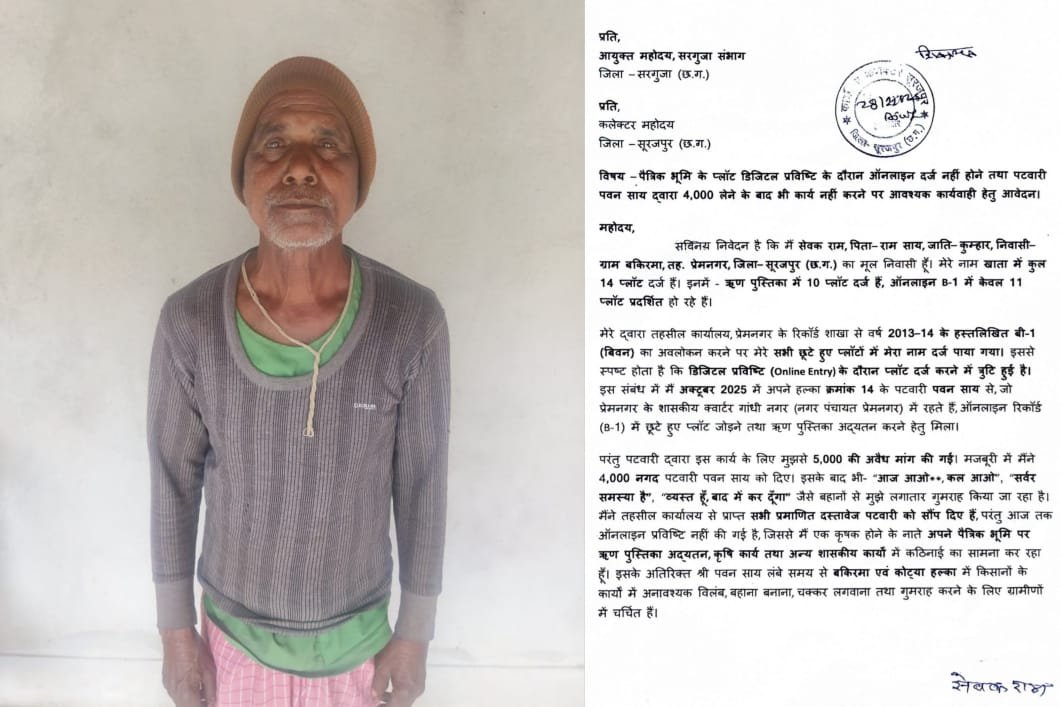 प्रति,
आयुक्त महोदय, सरगुजा संभाग
जिला – सरगुजा (छ.ग.)
प्रति,
कलेक्टर महोदय
जिला – सूरजपुर (छ.ग.)
विषय –पैत्रिक भूमि के प्लॉट डिजिटल प्रविष्टि के दौरान ऑनलाइन दर्ज नहीं होने तथा पटवारी
पवन साय द्वारा 4,000 लेने के बाद भी कार्य नहीं करने पर आवश्यक कार्यवाही हेतु आवेदन।
महोदय,
सविनय निवेदन है कि मैं सेवक राम, पिता– राम साय, जाति– कुम्हार, निवासी–
ग्राम बकिरमा, तह. प्रेमनगर, जिला–सूरजपुर (छ.ग.) का मूल निवासी हूँ। मेरे नाम खाता में कुल
14 प्लॉट दर्ज हैं। इनमें - ऋण पुस्तिका में 10 प्लॉट दर्ज हैं, ऑनलाइन B-1 में केवल 11
प्लॉट प्रदर्शित हो रहे हैं।
मेरे द्वारा तहसील कार्यालय, प्रेमनगर के रिकॉर्ड शाखा से वर्ष 2013–14 के हस्तलिखित बी-1
(बिवन) का अवलोकन करने पर मेरे सभी छूटे हुए प्लॉटों में मेरा नाम दर्ज पाया गया। इससे
स्पष्ट होता है कि डिजिटल प्रविष्टि (Online Entry) के दौरान प्लॉट दर्ज करने में त्रुटि हुई है।
इस संबंध में मैं अक्टूबर 2025 में अपने हल्का क्रमांक 14 के पटवारी पवन साय से, जो
प्रेमनगर के शासकीय क्वार्टर गांधी नगर (नगर पंचायत प्रेमनगर) में रहते हैं, ऑनलाइन रिकॉर्ड
(B-1) में छूटे हुए प्लॉट जोड़ने तथा ऋण पुस्तिका अद्यतन करने हेतु मिला।
परंतु पटवारी द्वारा इस कार्य के लिए मुझसे 5,000 की अवैध मांग की गई। मजबूरी में मैंने
4,000 नगद पटवारी पवन साय को दिए। इसके बाद भी- "आज आओ**, कल आओ", "सर्वर
समस्या है", "व्यस्त हूँ, बाद में कर दूँगा" जैसे बहानों से मुझे लगातार गुमराह किया जा रहा है।
मैंने तहसील कार्यालय से प्राप्त सभी प्रमाणित दस्तावेज पटवारी को सौंप दिए हैं, परंतु आज तक
ऑनलाइन प्रविष्टि नहीं की गई है, जिससे मैं एक कृषक होने के नाते अपने पैत्रिक भूमि पर
ऋण पुस्तिका अद्यतन, कृषि कार्य तथा अन्य शासकीय कार्यों में कठिनाई का सामना कर रहा
हूँ। इसके अतिरिक्त श्री पवन साय लंबे समय से बकिरमा एवं कोट्या हल्का में किसानों के
कार्यों में अनावश्यक विलंब, बहाना बनाना, चक्कर लगवाना तथा गुमराह करने के लिए ग्रामीणों
में चर्चित हैं।
सेवक राम